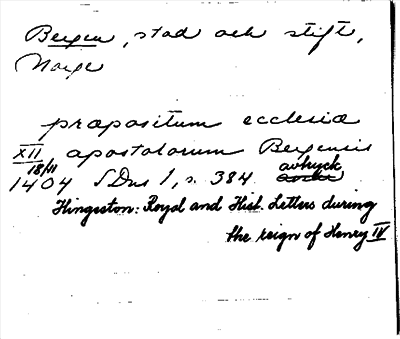 Bergen, stad och stift,
Norge
propositum ecclesiæ
XII apostolorum Bergensis
18/11
1404 SDns 1, s. 384. avtryck
Hingeston: Royal and Hist. Letters during
the reign of Henry IV